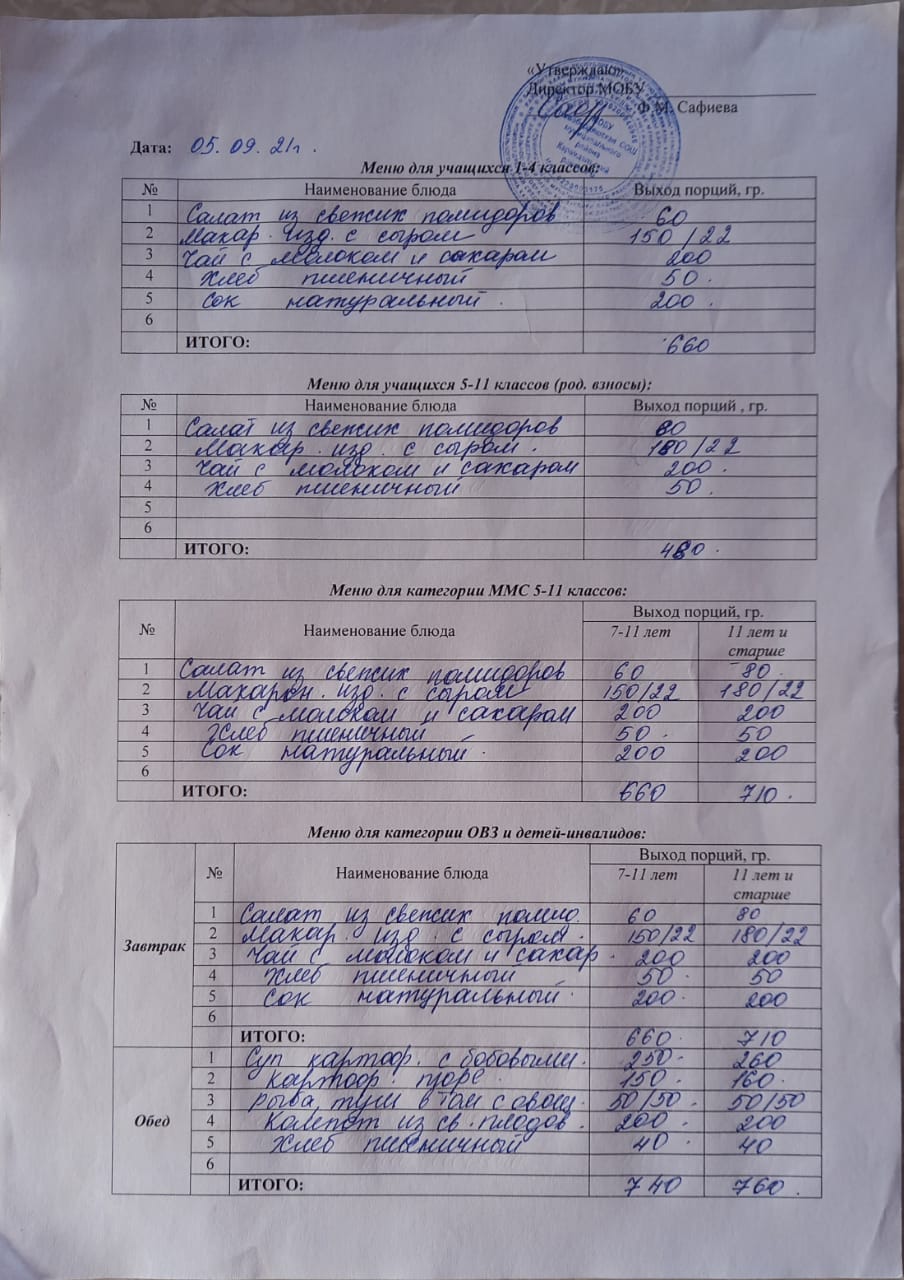 «Утверждаю»
Директор МОБУ
Ф.М. Сафиева
Дата: 05.09.21г.
Меню для учащихся 1-4 классов:
№ Наименование блюда Выход порций, гр.
1 Салат из свежих помидоров 60
2 Макар. изд. с сыром 150/22
3 Чай с молоком и сахаром 200
4 Хлеб пшеничный 50.
5 Сок натуральный. 200.
6
ИТОГО: 660
Меню для учащихся 5-11 классов (род. взносы):
№ Наименование блюда Выход порций , гр.
1 Салат из свежих помидоров 60
2 Макар. изд. с сыром. 180/22
3 Чай с молоком и сахаром 200.
4 Хлеб пшеничный 50.
5
6
ИТОГО:
Меню для категории ММС 5-11 классов:
№ Наименование блюда Выход порций, гр.
7-11 лет 11 лет и
старше
1 Салат из свежих помидоров 60 80.
2 Макарон. изд. с сыром 150/22 180/22
3 Чай с молоком и сахаром 200 200
4 Хлеб пшеничный 50. 50
5 Сок натуральный. 200 200
6
ИТОГО: 660 710.
Меню для категории ОВЗ и детей-инвалидов:
№ Наименование блюда Выход порций, гр.
7-11 лет 11 лет и
старше
Завтрак
1 Салат из свежих помид. 60 80
2 Макар. изд. с сыром. 150/22 180/22
3 Чай с молоком и сахар. 200 200
4 Хлеб пшеничный 50. 50
5 Сок натуральный. 200. 200
6
ИТОГО: 660. 710
Обед
1 Суп картоф. с бобовыми. 250. 260
2 Картоф. пюре. 150. 160.
3 Рыба туш в том с овощ. 50/50. 50/50
4 Компот из св. плодов. 200. 200
5 Хлеб пшеничный 40. 40
6
ИТОГО: 740 760.